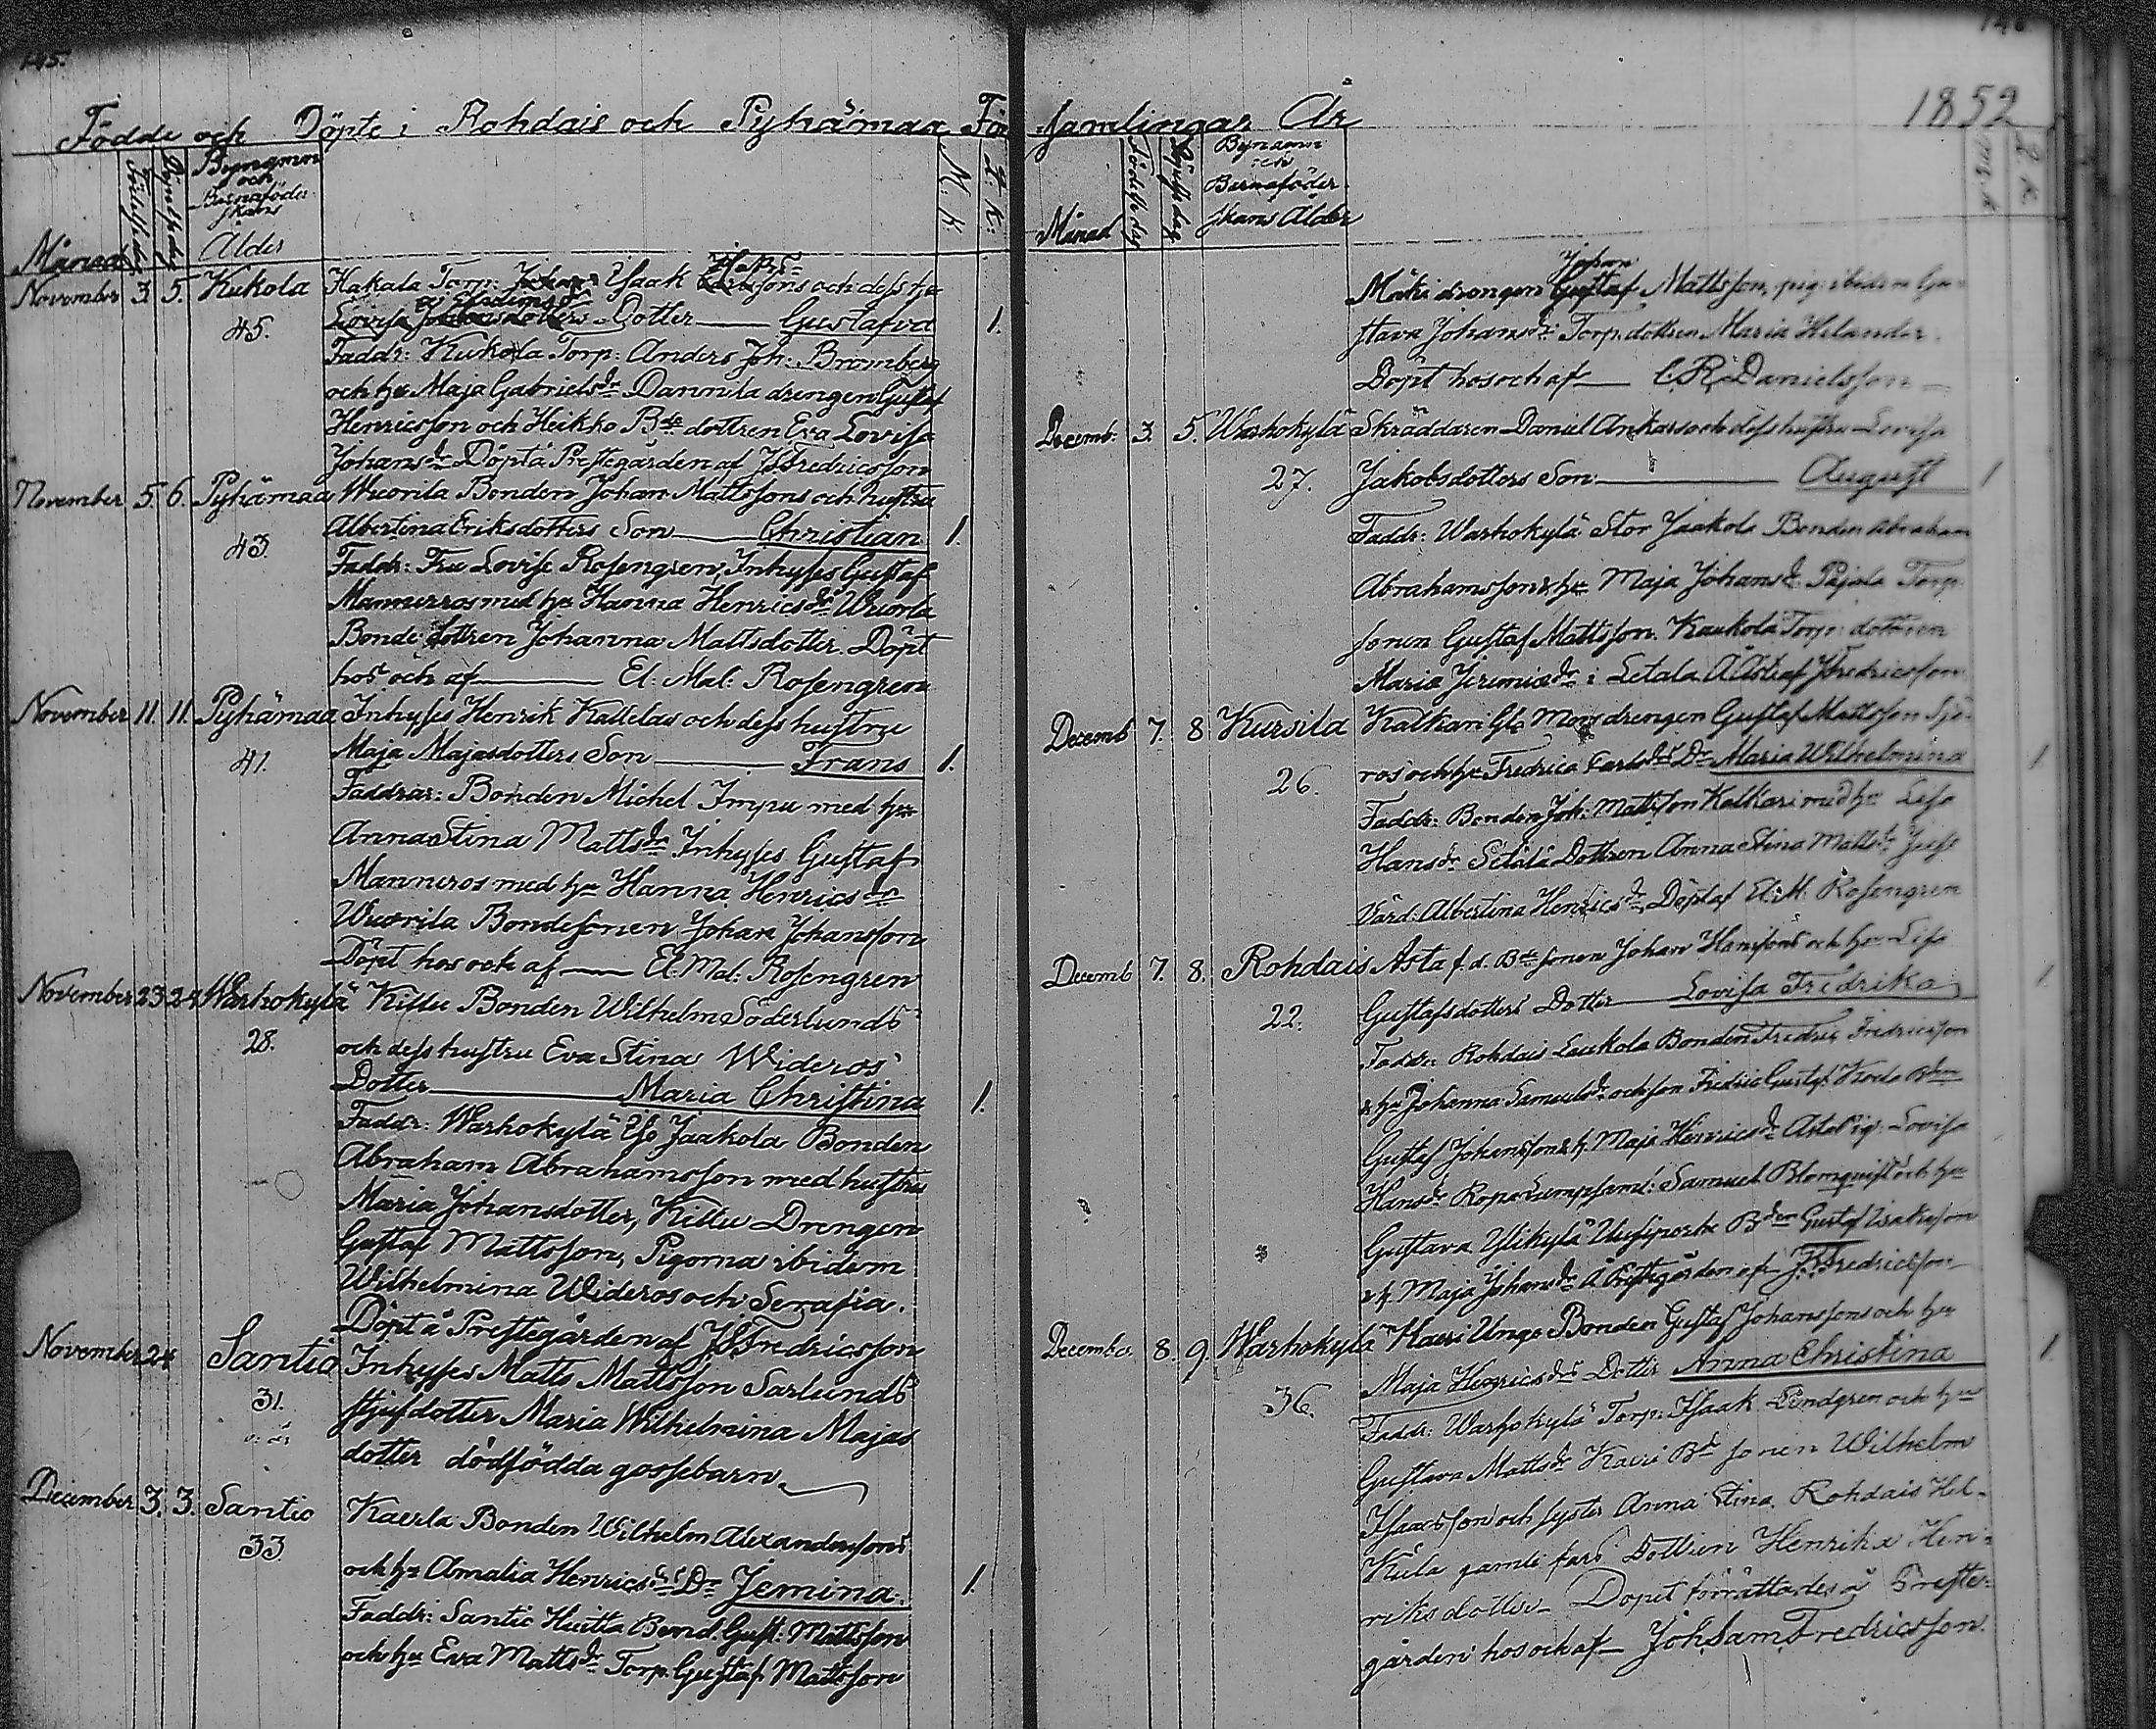 145.
Födde och Döpte i Rohdais och Pyhämaa För
Månad
Födelsedag
Döpelsedag
Bynamn
och
Barnaföder-
skans
Ålder
M. k.
Q. k.
November 3. 5. Kukola Kakala Torp. Isaak sons och dess h:u
45. Lovisa Dotter Gustafva 1.
Faddr: Kukola Torp: Anders Joh: Bromberg
och h:u Maja Gabriels dr Dannila drengen Gustaf
Henricsson och Heikko Bde dottren Eva Lovisa
Johans dr Döpt å Prestegården af JSFredricsson
November 5. 6. Pyhämaa Wuorila Bonden Johan Mattssons och hustru
43. Albertina Eriksdotters Son Christian 1.
Faddr: Fru Lovise Rosengren, Inhyses Gustaf
Manneros med h:u Hanna Henrics dr Wuorila
Bonde dottren Johanna Mattsdotter. Döpt
hos och af El: Mal: Rosengren
November 11. 11. Pyhämaa Inhyses Henrik Kallelas och dess hustru
41. Maja Majasdotters Son Frans 1.
Faddrar: Bonden Michel Impu med h:u
Anna Stina Matts dr Inhyses Gustaf
Manneros med h:u Hanna Henrics dr
Wuorila Bondesonen Johan Johansson
Döpt hos och af El: Mal: Rosengren
November 23. 24. Warhokylä Killu Bonden Wilhelm Söderlunds
28. och dess hustru Eva Stina Wideros
Dotter Maria Christina 1.
Faddr: Warhokylä Jaakola Bonden
Abraham Abrahamsson med hustru
Maria Johansdotter, Killu Drengen
Gustaf Mattsson, Pigorna ibidem
Wilhelmina Wideros och Serafia.
Döpt å Prestegården af JSFredricsson
November 24 Santio Inhyses Matts Mattsson Sarlunds
31. styfdotter Maria Wilhelmina Majas
dotter dödfödda gossebarn
December 3. 3. Santio Kaerla Bonden Wilhelm Alexanderssons
33. och h:u Amalia Henrics drs Dr Jemina. 1.
Faddr: Santio Huitta Bond. Gust: Mattsson
och h:u Eva Matts dr Torp. Gustaf Mattsson
146
samlingar År 1852
Månad
Födelsedag
Döpelsedag
Bynamn
och
Barnaföder-
skans Ålder
M. k.
Q. k.
Johan
Mäki drengen Gustaf Mattsson, pig. ibidem Gu-
stava Johans dr Torp. dottren Maria Helander.
Döpt hos och af C.R. Danielsson
Decemb. 3. 5. Warhokylä Skräddaren Daniel Ankars och dess hustru Lovisa
27. Jakobsdotters Son August 1
Faddr: Warhokylä Stor Jaakola Bonden Abraham
Abrahamsson & h:u Maja Johans dr Pajala Torp.
sonen Gustaf Mattsson. Kaukola Torp: dottren
Maria Jeremie dr i Letala af JSFredricsson
Decemb 7. 8 Kursila Kalkari drengen Gustaf Mattsson Sjö-
26. ros och h:u Fredrica Carls drs Dr Maria Wilhelmina 1
Faddr: Bonden Joh: Mattsson Kalkari med h:u Lisa
Hans dr Sälilä Dottren Anna Stina Matts dr
Värd: Albertina Henrics dr, Döpt af El: M: Rosengren
Decemb 7. 8. Rohdais Asta f.d. Bde sonen Johan Hanssons och h:u Lisa
22. Gustafsdotters Dotter Lovisa Fredrika 1
Faddr: Rohdais Laukola Bonden Fredric Fredricsson
& h:u Johanna Samuels dr och son Fredric Gustaf
Gustaf Johansson & h. Maja Henrics dr Asta Pig: Lovisa
Hans dr Samuel Blomqvist och h:u
Gustava Ylikylä Gustaf Isaksson
& h. Maja Johans dr å Prestegården af JSFredricsson
December. 8. 9. Warhokylä Kaeri Unge Bonden Gustaf Johanssons och h:u
36. Maja Henrics drs Dotter Anna Christina 1.
Faddr: Warhokylä Torp: Isaak Lindgren och h:u
Gustava Matts dr Kaeri Bd sonen Wilhelm
Isaacsson och syster Anna Stina. Rohdais Hel-
Kula gamle fars Dottren Henrika Hen-
riksdotter. Dopet förrättades å Preste-
gården hos och af Joh Sam Fredricsson.